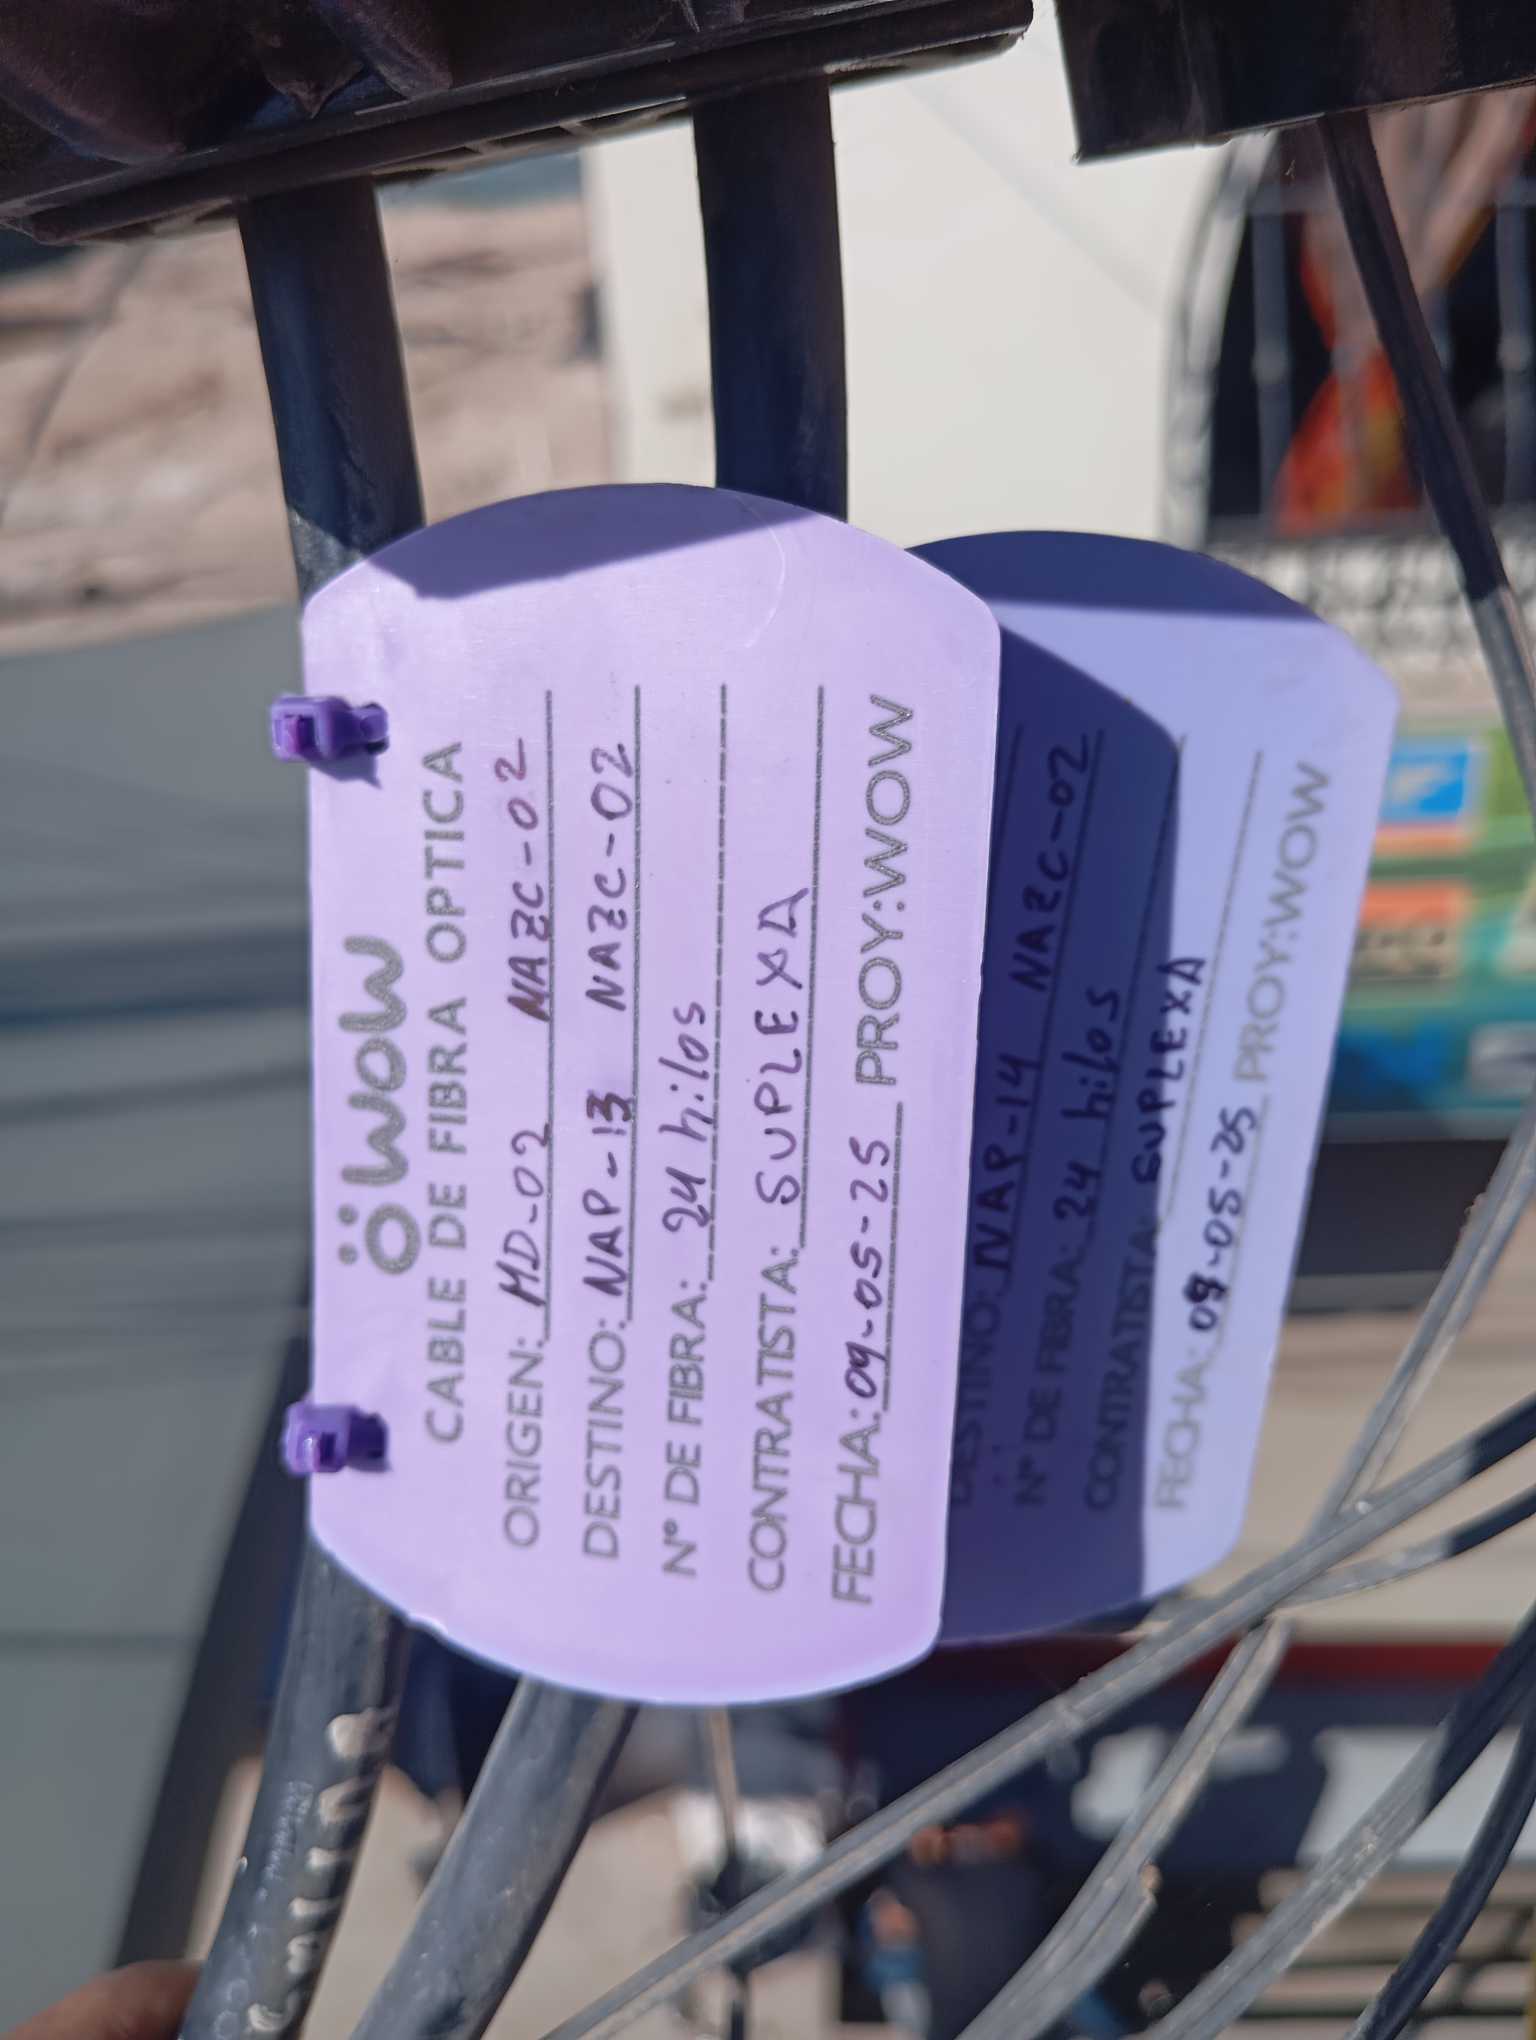 WOW
CABLE DE FIBRA OPTICA
ORIGEN: MD-02 NAZC-02
DESTINO: NAP-13 NAZC-02
N° DE FIBRA: 24 hilos
CONTRATISTA: SUPLEXA
FECHA: 09-05-25 PROY:WOW
DESTINO: NAP-14 NAZC-02
N° DE FIBRA: 24 hilos
CONTRATISTA: SUPLEXA
FECHA: 09-05-25 PROY:WOW